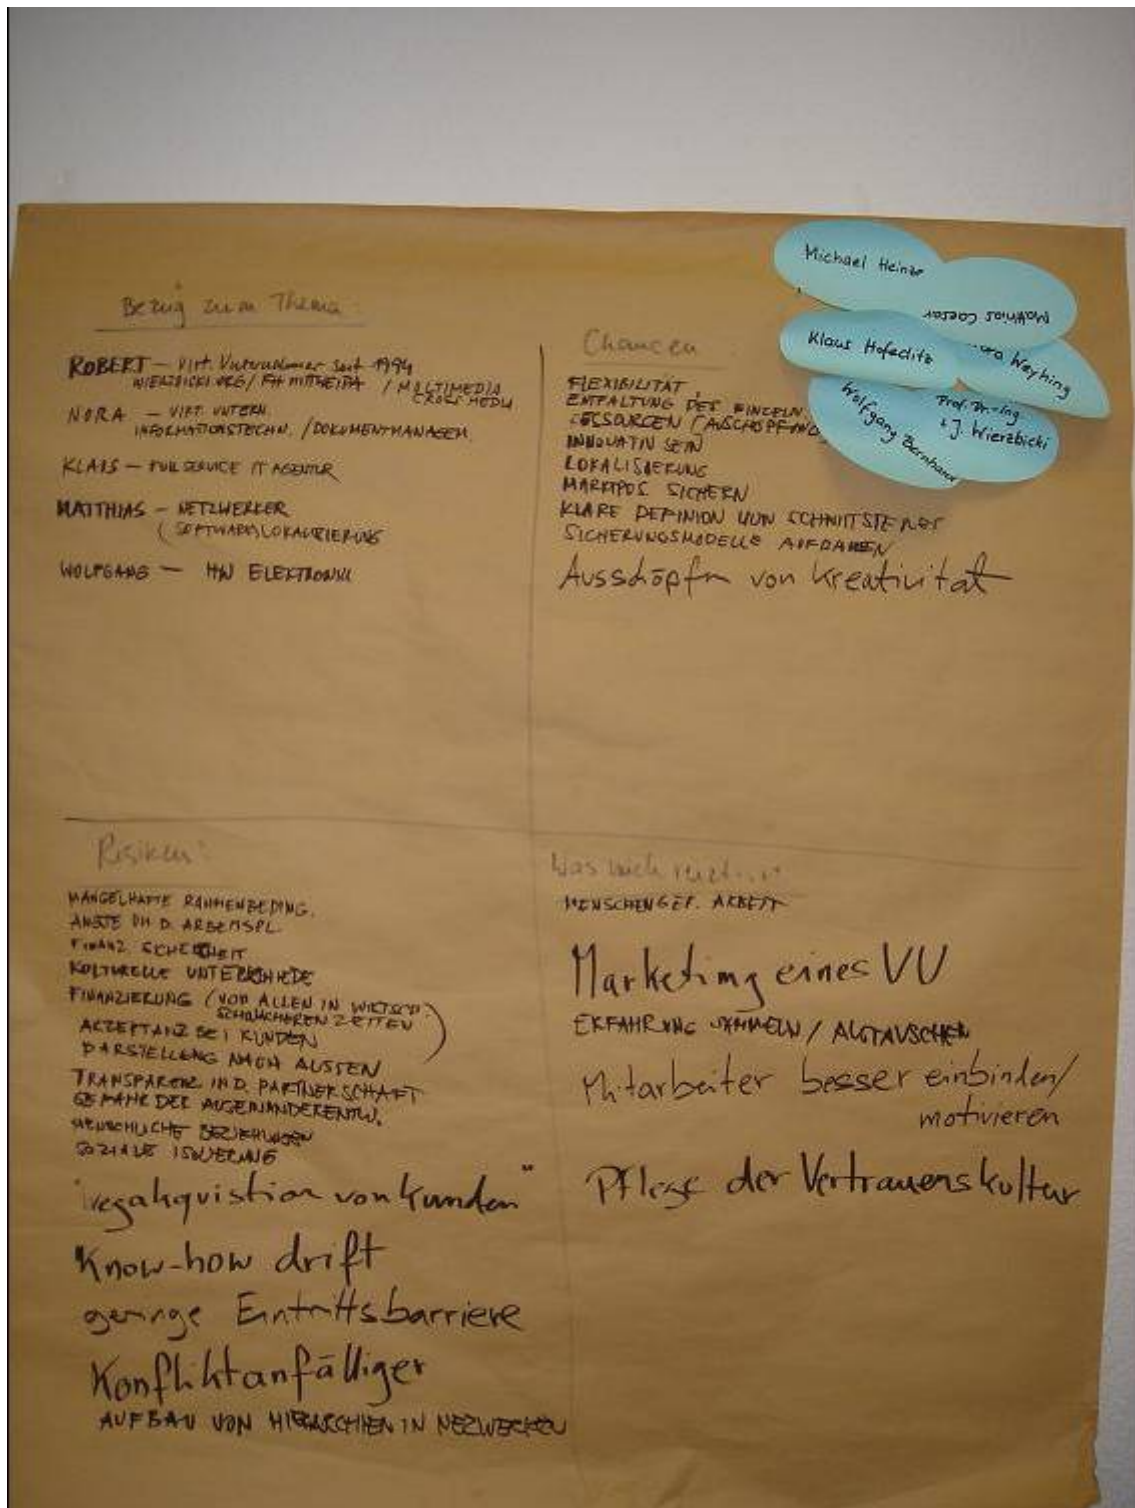 Bezug zum Thema:
ROBERT – Virt. Unternehmer seit 1994
WIERZBICKI.ORG / FH MITTWEIDA / MULTIMEDIA
CROSSMEDIA
NORA – VIRT. UNTERN.
INFORMATIONSTECHN. / DOKUMENTMANAGEM.
KLAUS – FULL SERVICE IT AGENTUR
MATTHIAS – NETZWERKER
(SOFTWARELOKALISIERUNG
WOLFGANG – HW ELEKTRONIK
Michael Heinze
Matthias Caesar
Klaus Hofeditz
Weyhing
Prof. Dr.-Ing.
J. Wierzbicki
Wolfgang Bernhauer
Chancen
FLEXIBILITÄT
ENTFALTUNG DES EINZELN.
RESSOURCEN (AUSCHÖPFUNG
INNOVATIV SEIN
LOKALISIERUNG
MARKTPOS. SICHERN
KLARE DEFINION VON SCHNITTSTELLEN
SICHERUNGSMODELLE AUFBAUEN
Ausschöpfen von Kreativität
Risiken:
MANGELHAFTE RAHMENBEDING.
ÄNGSTE D. ARBEITSPL.
FINANZ. SICHERHEIT
KULTURELLE UNTERSCHIEDE
FINANZIERUNG (VOR ALLEN IN WIRTSCH.
SCHWÄCHEREN ZEITEN)
AKZEPTANZ BEI KUNDEN
DARSTELLUNG NACH AUSSEN
TRANSPARENZ IN D. PARTNERSCHAFT
GEFAHR DER AUSEINANDERENTW.
MENSCHLICHE BEZIEHUNGEN
SOZIALE ISOLIERUNG
"Wegakquistion von Kunden"
Know-how drift
geringe Eintrittsbarriere
Konfliktanfälliger
AUFBAU VON HIERARCHIEN IN NEZWERKEN
Was mich
MENSCHENGER. ARBEIT
Marketing eines VU
ERFAHRUNG SAMMELN / AUSTAUSCHEN
Mitarbeiter besser einbinden/
motivieren
Pflege der Vertrauenskultur